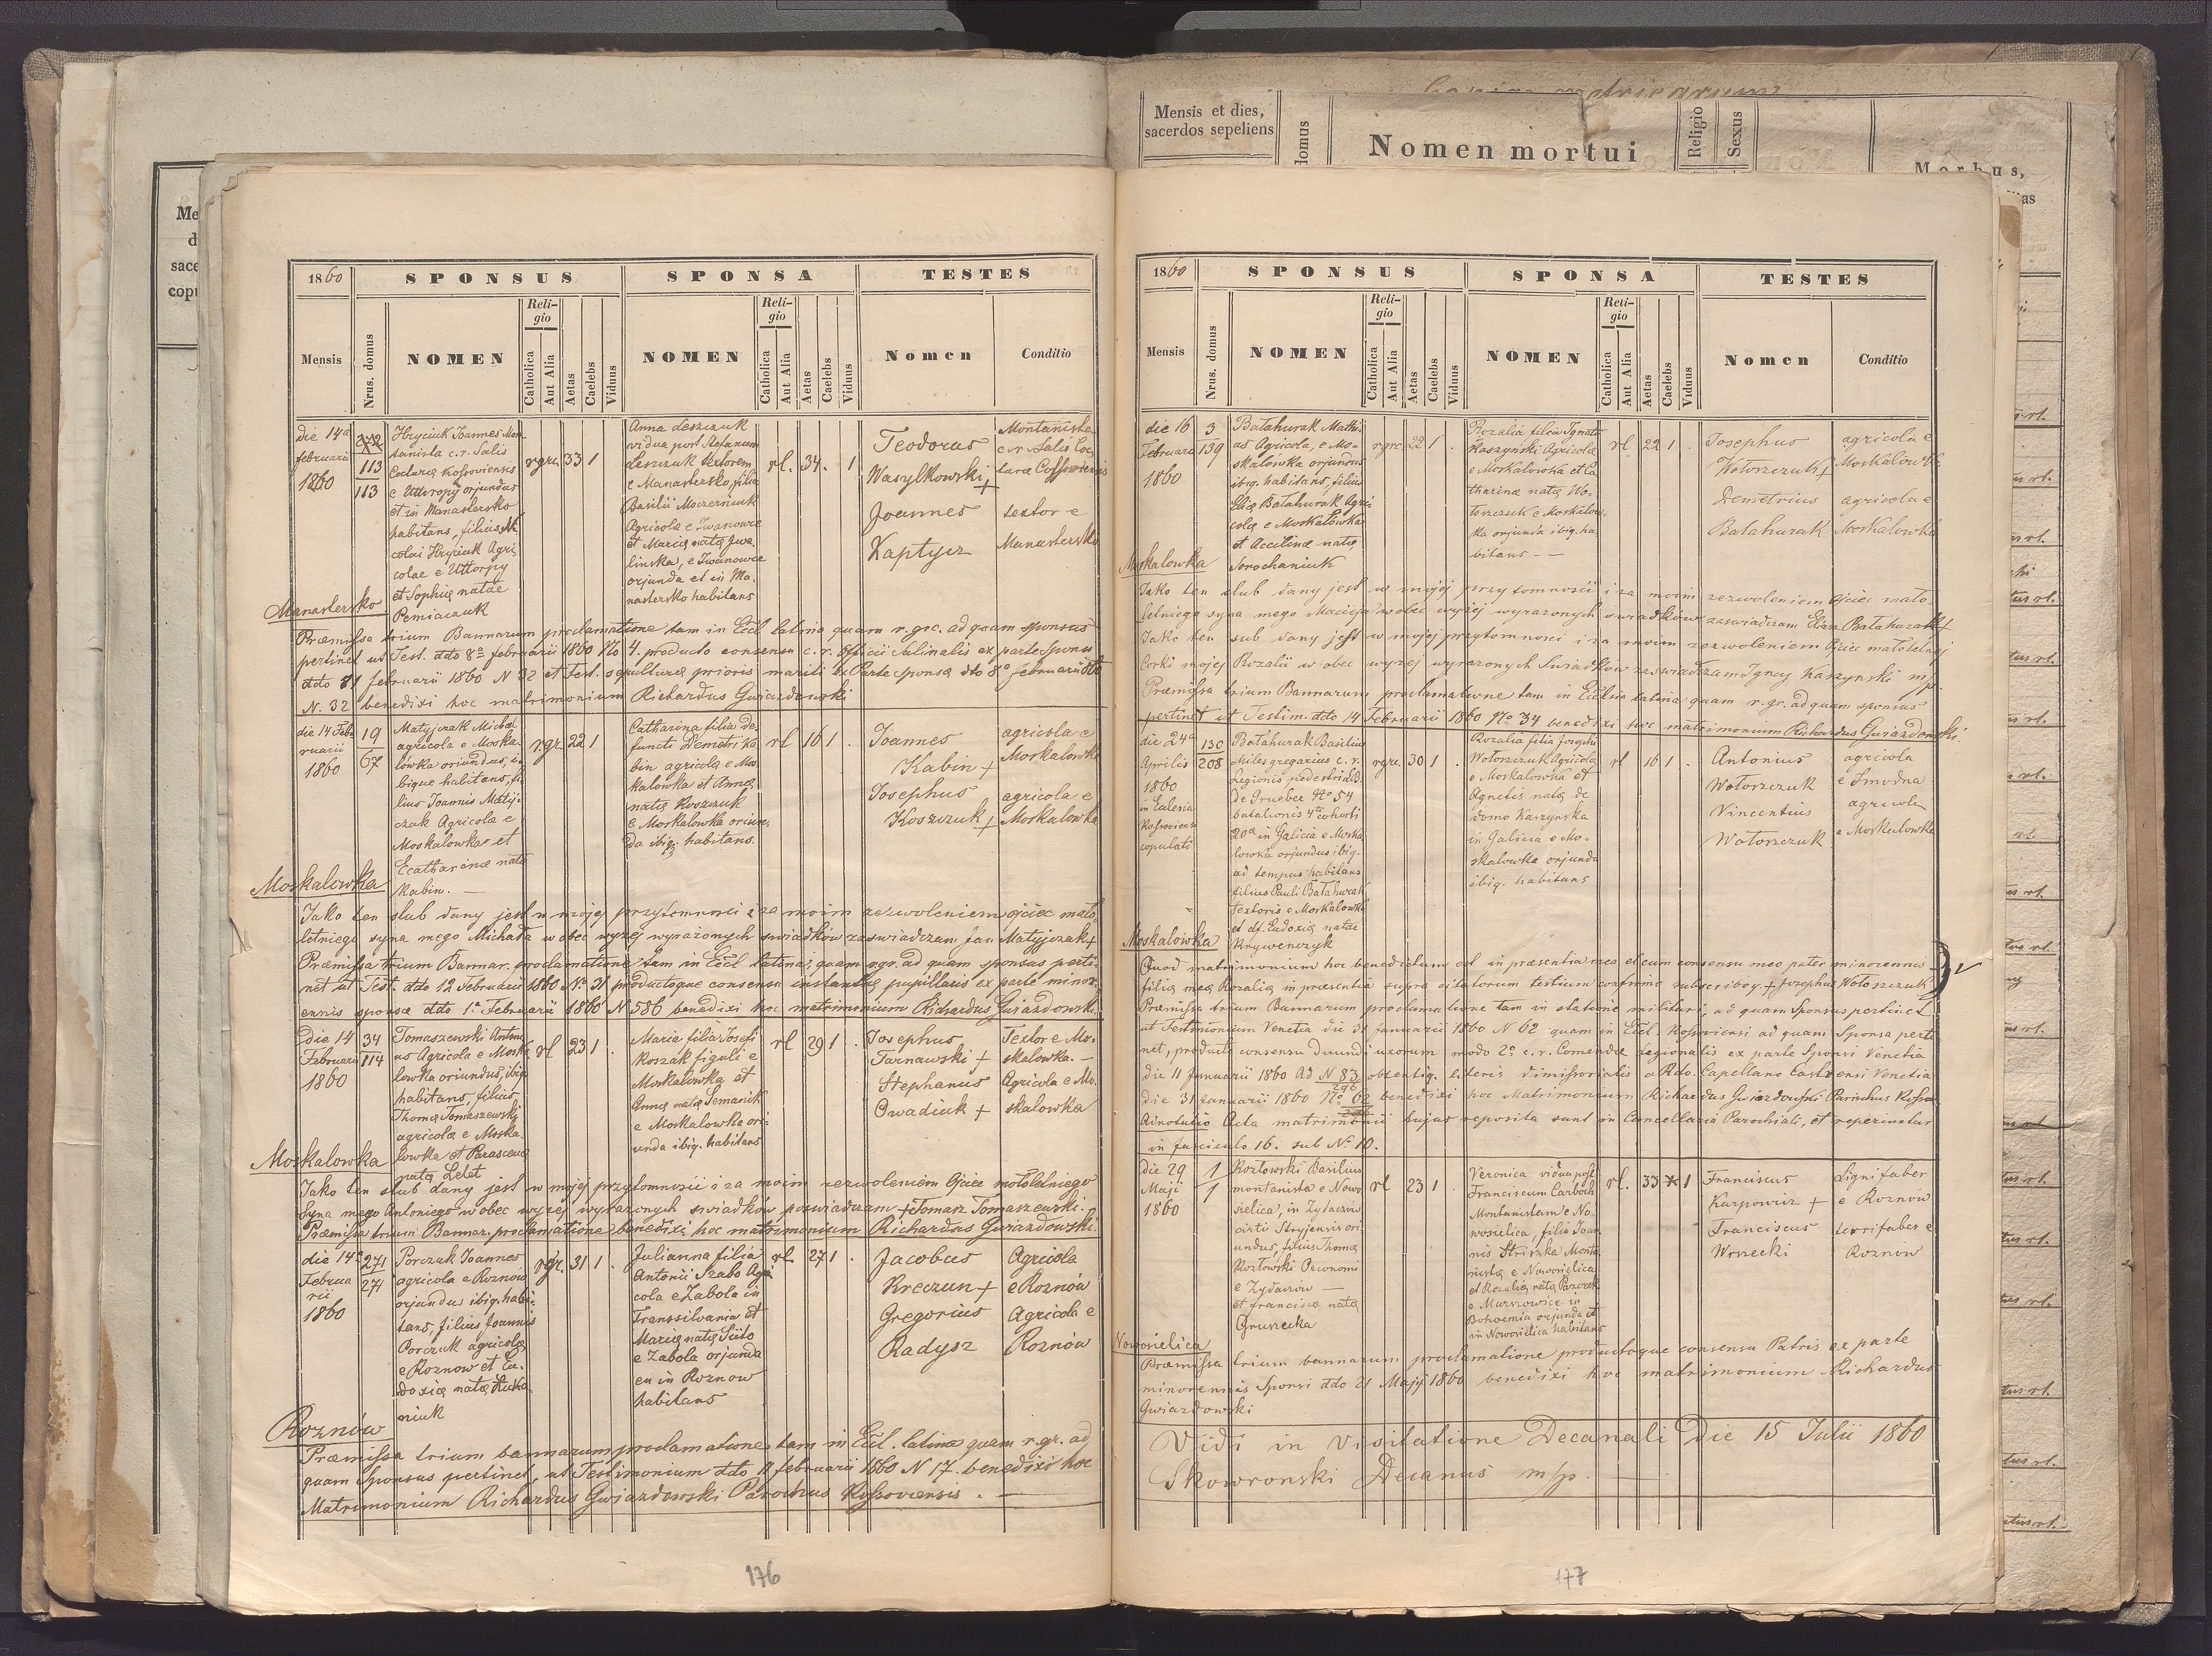 1860
SPONSUS
SPONSA
TESTES
Mensis
Nrus. domus
NOMEN
Religio
Catholica
Aut Alia
Aetas
Caelebs
Viduus
NOMEN
Religio
Catholica
Aut Alia
Aetas
Caelebs
Viduus
Nomen
Conditio
die 14a
februarii
1860
113
113
Hryciuk Joannes Mon-
tanista c.r. Salis
Cocturae Kossoviensis
e Uttoropy orjundus
et in Manastersko
habitans, filius Ni
colai Hryciuk Agri
colae e Uttoropy
et Sophiae natae
Pemiaczuk
rgre 33 1
Anna Leszczuk
vidua post Stefanum
Leszczuk textorem
e Manastersko, filia
Basilii Moczerniuk
Agricolae e Iwanowce
et Mariae natae Jwa
linska, e Iwanowce
orjunda et in Ma-
nastersko habitans
rl. 34. 1
Teodorus
Wasylkowski +
Joannes
Kaptycz
Montanista
c.r. Salis Coc
turae Cossoviensis
textor e
Manastersko
Manastersko
Praemissa trium Bannarum proclamatione tam in Eccl latina quam r. grc. ad quam sponsus
pertinet ut Test. ddo 8a februarii 1860 No 4. producto consensu c. r. Officii Salinalis ex parte Sponsi
ddo 31 februarii 1860 N 32 et Test. sepulturae prioris mariti ex Parte sponsae dto 8a februarii
N. 32 benedixi hoc matrimonium Richardus Gwiazdowski
die 14 Feb
ruarii
1860
19
67
Matyjczak Michael
agricola e Moska-
lówka oriundus, i-
bique habitans, fi-
lius Joannis Matyj-
czak Agricolae e
Moskalowka et
Ecatharinae natae
Kabin. —
rgr. 22 1
Catharina filia de
functi Demetri Ka
bin agricolae e Mos
kalowka et Annae
natae Koszczuk
e Moskalowka oriun-
da ibiq. habitans.
rl 16 1 .
Joannes
Kabin +
Josephus
Koszczuk +
agricola e
Moskalowka
agricola e
Moskalowka
Moskalowka
Jako ten slub dany jest w mojej przytomnosci i za moim zezwoleniem ojciec mało-
letniego syna mego Michała w obec wyżej wyrażonych swiadków zaswiadczam Jan Matyjczak +
Praemissa trium Bannar. proclamatione tam in Eccl latina, quam rgr. ad quam sponsus perti-
net ut Test. ddo 12 Februarii 1860 No 21 productoque consensu instantiae pupillaris ex parte minor-
ennis sponsae ddo 1a Februarii 1860 N 586 benedixi hoc matrimonium Richardus Gwiazdowski
Die 14
Februarii
1860
34
114
Tomaszewski Antoni
us Agricola e Moska
lowka oriundus, ibiq.
habitans, filius
Thomae Tomaszewski
agricolae e Moska-
lowka et Parascevae
natae Letet
rl 23 1
Maria filia Josefi
Koszak figuli e
Moskalowka et
Annae natae Semanik
e Moskalowka ori-
unda ibiq. habitans
rl 29 1 .
Josephus
Tarnawski +
Stephanus
Owadiuk +
Textor e Mo-
skalowka. —
Agricola e Mo-
skalowka
Moskalowka
Jako ten slub dany jest w mojej przytomnosci i za moim zezwoleniem Ojciec małoletniego
Syna mego Antoniego w obec wyżej wyrażonych swiadków poswiadczam + Tomasz Tomaszewski.
Praemissa trium Bannar. proclamatione benedixi hoc matrimonium Richardus Gwiazdowski
die 14a
Februa
rii
1860
271
271
Porczuk Joannes
agricola e Roznow
orjundus ibiq. habi-
tans, filius Joannis
Porczuk agricolae
e Roznow et Eu-
doxiae natae Luka-
niuk
rgr. 31 1 .
Julianna filia
Antonii Szabo Agri
cola e Zabola in
Transsilvania et
Mariae natae Süto
e Zabola orjunda
en in Roznow
habitans
rl 27 1 .
Jacobus
Kreczun +
Gregorius
Radysz
Agricola
e Roznów
Agricola e
Roznów
Roznów
Praemissa trium bannarum proclamatione tam in Eccl. latina quam r.gr. ad
quam Sponsus pertinet, ut Testimonium ddo 11 februarii 1860 N 17. benedixi hoc
Matrimonium Richardus Gwiazdowski Parochus Kossoviensis. —
176
Copiae metricarum
Mensis et dies,
sacerdos sepeliens
domus
Nomen mortui
Religio
Sexus
Morbus,
1860
SPONSUS
SPONSA
TESTES
Mensis
Nrus. domus
NOMEN
Religio
Catholica
Aut Alia
Aetas
Caelebs
Viduus
NOMEN
Religio
Catholica
Aut Alia
Aetas
Caelebs
Viduus
Nomen
Conditio
die 16
Februarii
1860
3
139
Batahurak Mathi
as Agricola, e Mo-
skalówka orjundus
ibiq. habitans, filius
Eliae Batahurak Agri
colae e Moskalówka
et Accilinae natae
Sorochaniuk
rgrc 22 1 .
Rozalia filia Ignati
Kaszyński Agricolae
e Moskalowka et Ca
tharinae natae Wo-
toszczuk e Moskalow-
ka orjunda ibiq. ha
bitans - -
rl 22 1 .
Josephus
Wotoszczuk +
Demetrius
Batahurak
agricola e
Moskalowka
agricola e
Moskalowka
Moskalowka
Jako ten slub dany jest w mojej przytomności i za moim zezwoleniem Ojciec mało-
letniego syna mego Macieja w obec wyżej wyrazonych swiadków zaswiadczam Eliasz Batahurak +
Jako ten sub dany jest w mojej przytomnosci i za moim zezwoleniem Ojciec małoletnej
Corki mojej Rozalii w obec wyzej wyrazonych Swiadków zaswiadczam Ignacy Kaszynski mp.
Praemissa trium Bannarum proclamatione tam in Ecclsia latina quam r. gr. ad quam sponsus
pertinet ut Testim. ddo 14 Februarii 1860 No 34 benedixi hoc matrimonium Richardus Gwiazdowski.
die 24a
Aprilis
1860
in Eclesia
Kossoviensi
copulati
130
208
Batahurak Basilius
Miles gregarius c. r.
Legionis pedestris L.B.
de Grueber No 54
batalionis 4ti cohorti
20a in Galicia e Moska
lowka orjundus ibiq.
ad tempus habitans
filius Pauli Batahurak
Textoris e Moskalowka
et df. Eudoxiae natae
Krywenczyk
rgre. 30 1 .
Rozalia filia Josephi
Wotoszczuk Agricolae
e Moskalowka et
Agnetis natae de
domo Kaszynska
in Galicia e Mo-
skalowka orjunda
ibiq. habitans
rl 16 1 .
Antonius
Wotoszczuk
Vincentius
Wotoszczuk
agricola
e Smodna
agricola
e Moskalowka
Moskalowka
Quod matrimonium hoc benedictum est in praesentia mea et cum consensu meo pater minorennis
filiae meae Rozaliae in praesentia supra citatorum testium confirmo subscriboq. + Josephus Wotoszczuk
Praemissa trium Bannarum proclamatione tam in statione militari, ad quam Sponsus pertinet
ut Testimonium Venetia die 31 januarii 1860 N 62 quam in Eccl. Kossoviensi ad quam Sponsa perti
net, producto consensu ducendi uxorum modo 2o c. r. Comendae Legionalis ex parte Sponsi Venetia
die 11 Januarii 1860 Ad N 83 obtentiq. literis dimissorialis a Rdo. Capellano Castrensi Venetia
296
die 31 januarii 1860 No 62 benedixi hoc Matrimonium Richardus Gwiazdowski Parochus Kossov.
Adnotatio Acta matrimonii hujus reposita sunt in Cancellaria Parochiali, et reperiuntur
in fasciculo 16. sub No 10.
die 29
Maji
1860
1
1
Kozłowski Basilius
montanista e Nowo
sielica, in Zydaczow
circti Stryjensis ori-
undus, filius Thomae
Kozłowski Oeconomi
e Zydaczów —
et Franciscae natae
Gruszecka
rl 23 1 .
Veronica vidua post
Franciscum Carboch
Montanistam e No-
wosielica, filia Joan
nis Striszka Monta
nistae e Nowosielica
et Rozaliae natae
e Marszowice in
Bohoemia orjunda et
in Nowosielica habitans
rl. 33 1
Franciscus
Karpowicz +
Franciscus
Wrzecki
Lignifaber
e Roznow
ferrifaber e
Roznow
Nowosielica
Praemissa trium bannarum proclamatione productoque consensu Patris ex parte
minorennis Sponsi ddo 21 Maji 1860 benedixi hoc matrimonium - Richardus
Gwiazdowski
Vidi in visitatione Decanali Die 15 Julii 1860
Skowronski Decanus m/p. —
177